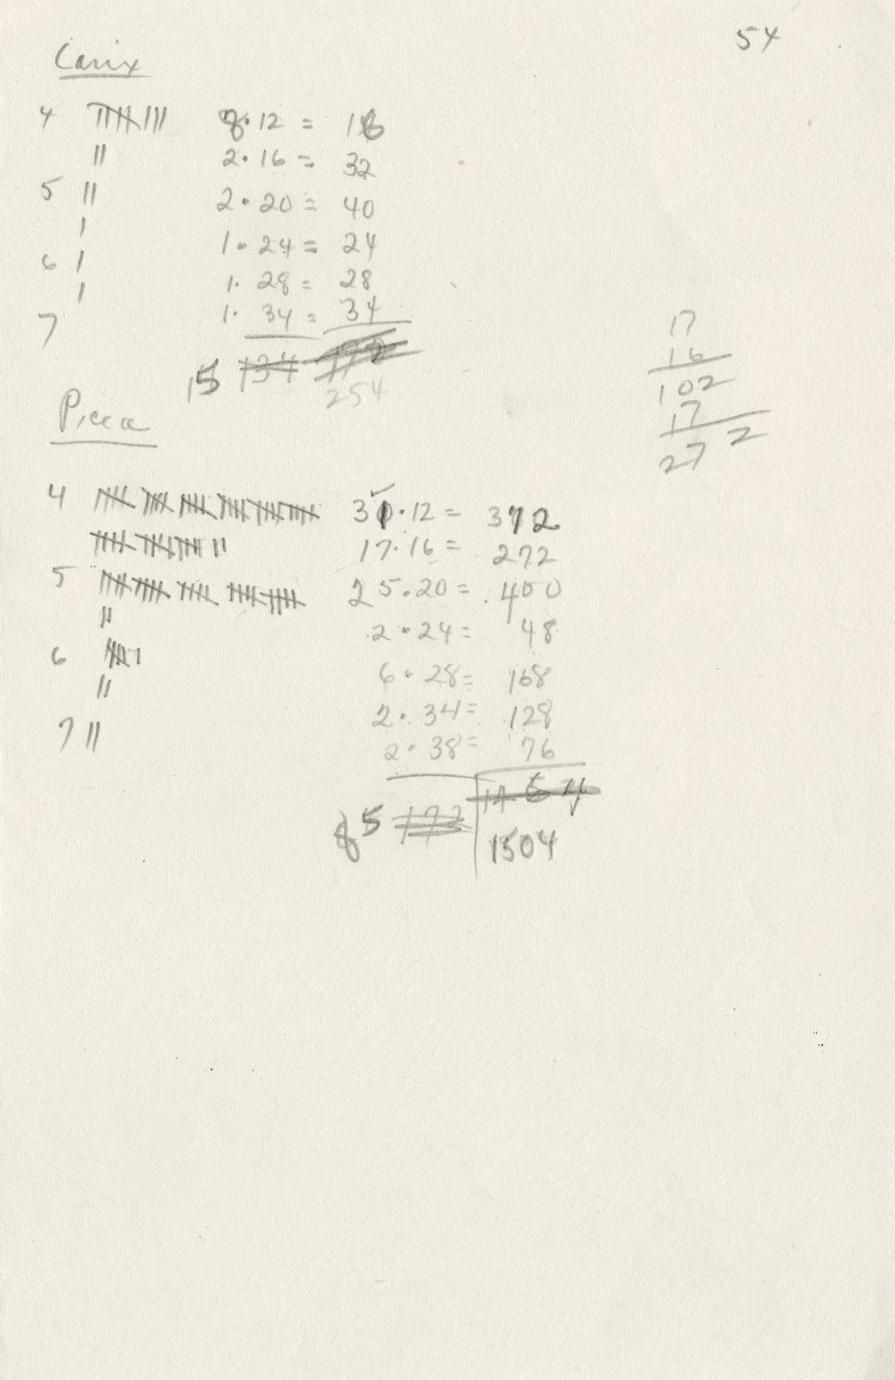 54
Carix
4 8·12 = 16
2·16 = 32
5 2·20 = 40
1·24 = 24
6 1·28 = 28
1·34 = 34
7
15 134 172
254
17
16
102
17
272
Picea
4 31·12 = 372
17·16 = 272
5 25·20 = 400
2·24 = 48
6 6·28 = 168
2·34 = 128
7 2·38 = 76
85 172 1464
1504